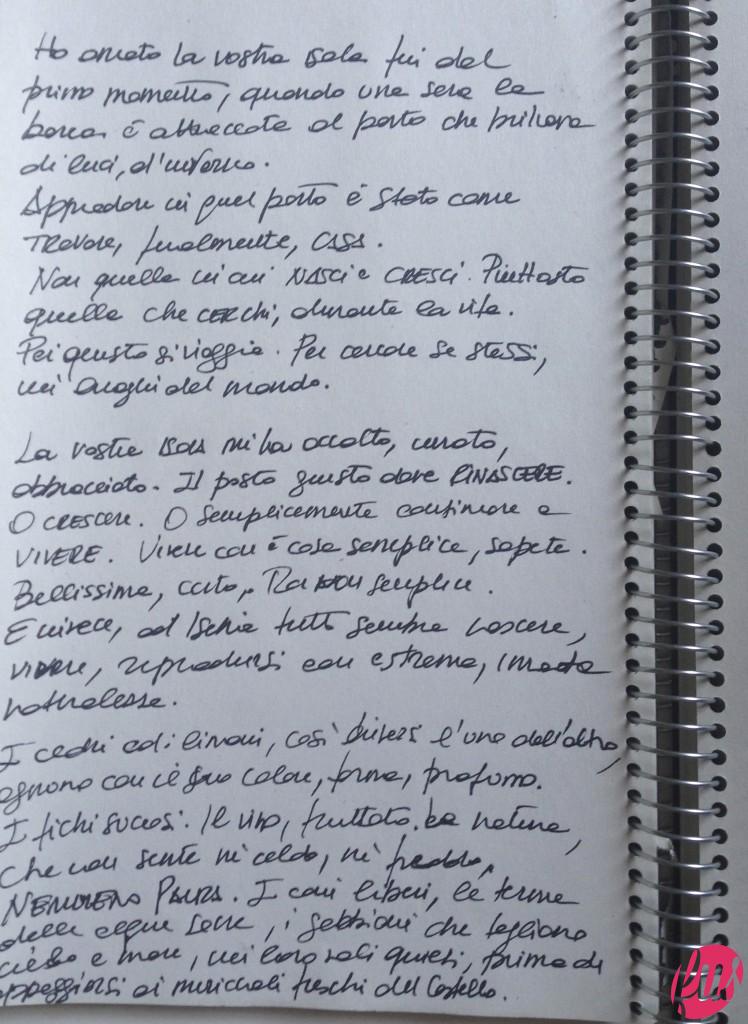 Ho amato la vostra isola fin dal
primo momento, quando una sera la
barca è attraccata al porto che brillava
di luci, d'inverno.
Approdare in quel porto è stato come
TROVARE, finalmente, CASA.
Non quella in cui NASCI e CRESCI. Piuttosto
quella che CERCHI, durante la vita.
Per questo si viaggia. Per cercare se stessi,
nei luoghi del mondo.
La vostra isola mi ha accolto, curato,
abbracciato. Il posto giusto dove RINASCERE.
O CRESCERE. O semplicemente continuare a
VIVERE. Vivere non è cosa semplice, sapete.
Bellissima, certo, Ma non semplice.
E invece, ad Ischia tutto sembra nascere,
vivere, riprodursi con estrema, innata
naturalezza.
I cedri ed i limoni, così diversi l'uno dall'altro,
ognuno con il suo colore, forma, profumo.
I fichi succosi. Il vino, fruttato. La natura,
che non sente nè caldo, nè freddo,
NEMMENO PAURA. I cani liberi, le terme
dalle acque sane, i gabbiani che tagliano
cielo e mare, nei loro voli quieti, prima di
appoggiarsi ai muriccioli freschi del Castello.